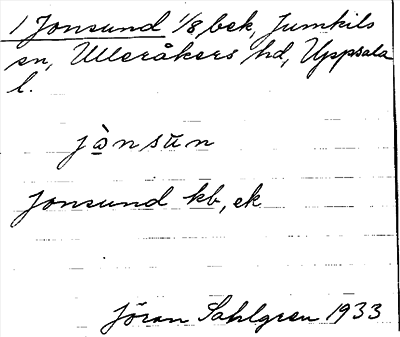 1 Jonsund 1/8, bek, Jumkils
sn, Ulleråkers hd, Uppsala
l.
jȯ̱nsun
Jonsund kb, ek
Jöran Sahlgren 1933